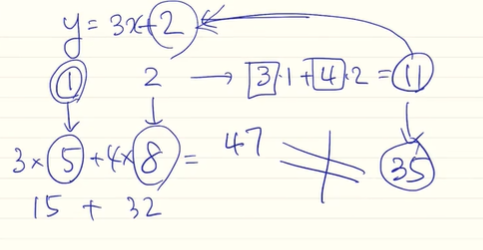 y = 3x+2
1 2 → 3·1 + 4·2 = 11
3×5+4×8= 47 ≠ 35
15 + 32